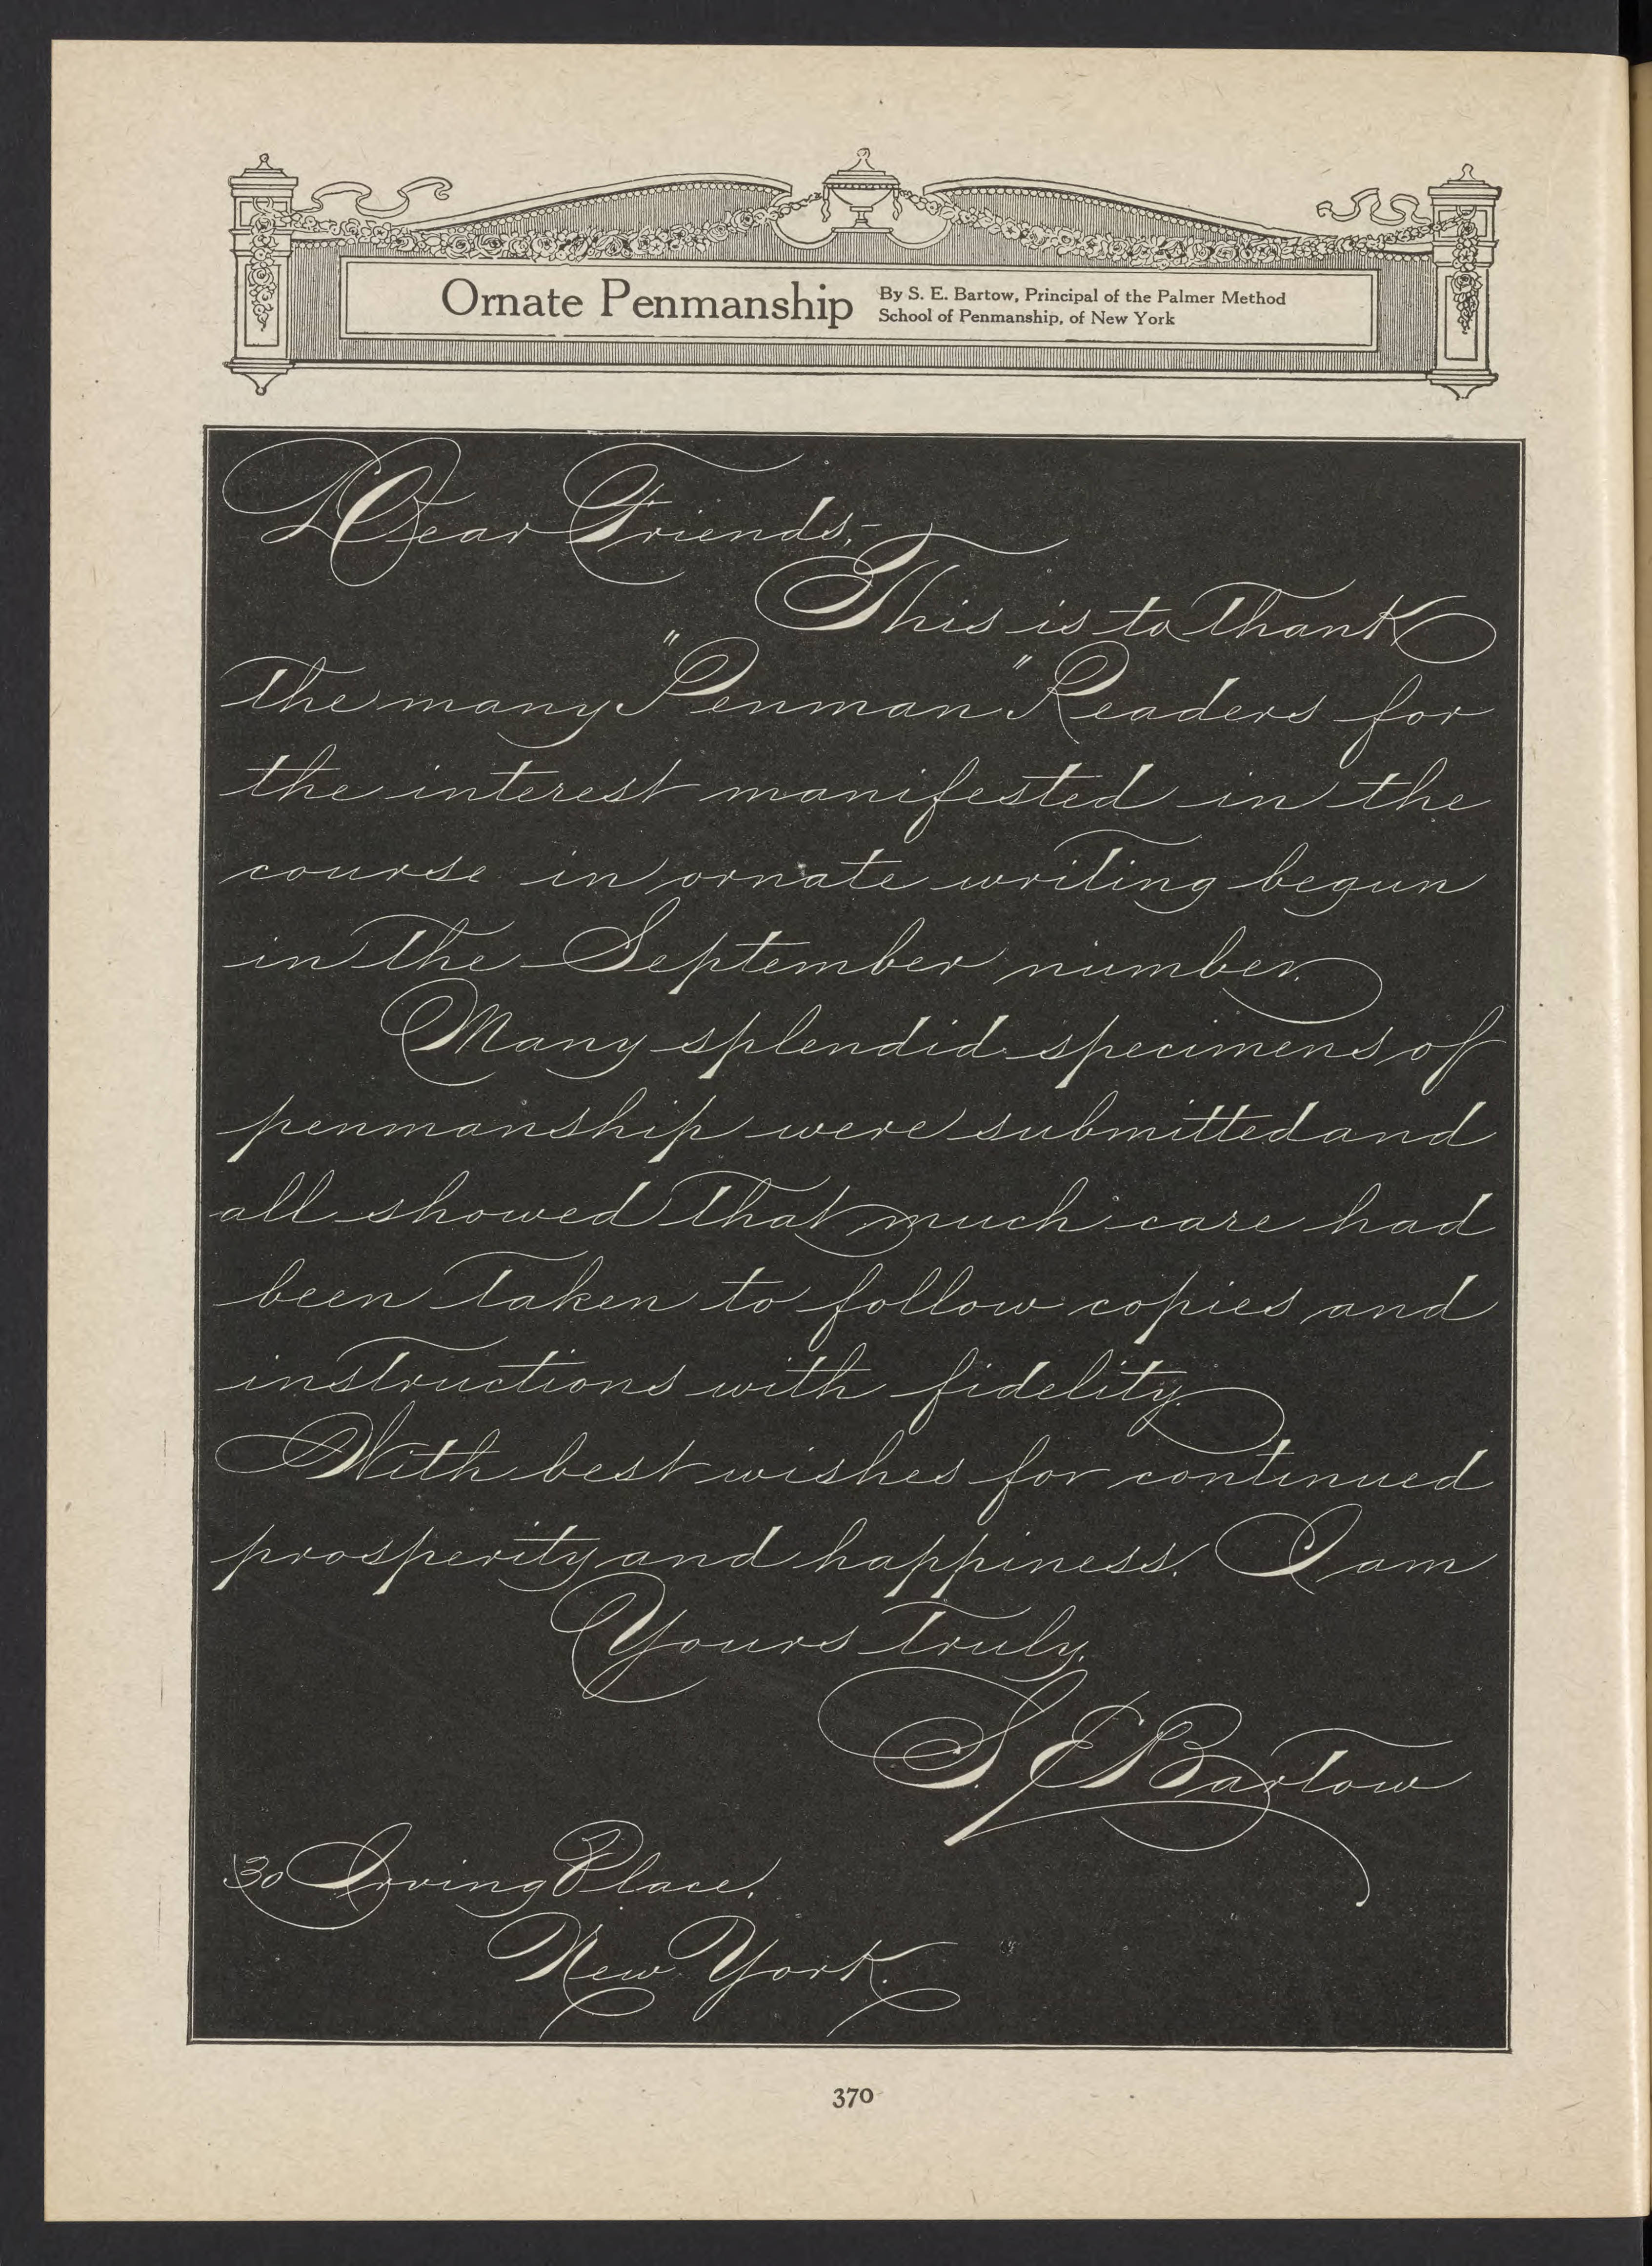 Ornate Penmanship
By S. E. Bartow, Principal of the Palmer Method
School of Penmanship, of New York
Dear Friends,-
This is to thank
the many "Penman" Readers for
the interest manifested in the
course in ornate writing begun
in the September number.
Many splendid specimens of
penmanship were submitted and
all showed that much care had
been taken to follow copies and
instructions with fidelity.
With best wishes for continued
prosperity and happiness. I am
Yours truly,
S. E. Bartow
30 Irving Place,
New York.
370